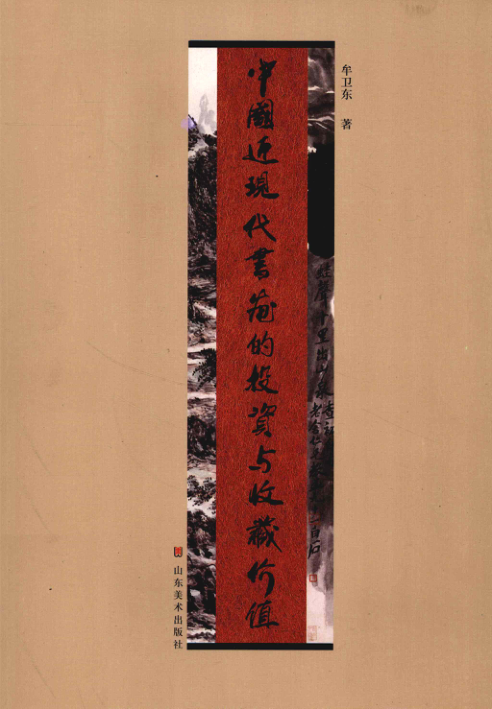 牟卫东 著
中國近現代書画的投資与收藏价值
山东美术出版社